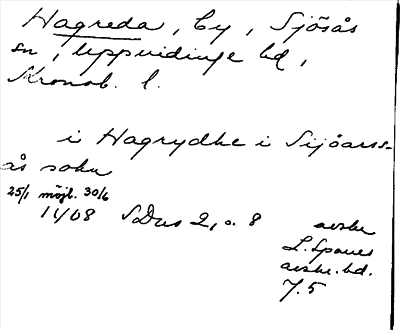 Hagreda, by, Sjösås
sn, Uppvidinge hd,
Kronob. l.
i Hagrydhe i Sijöarss-
ås sokn
25/1 möjl. 30/6
1408 SDns 2, s. 8
avskr
L. Spones
avskr. bd.
7.5